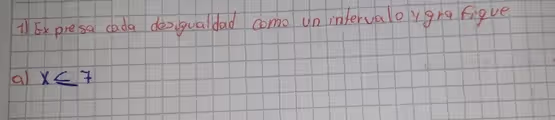 1) Expresa cada desigualdad como un intervalo y grafique
a) x ≤ 7